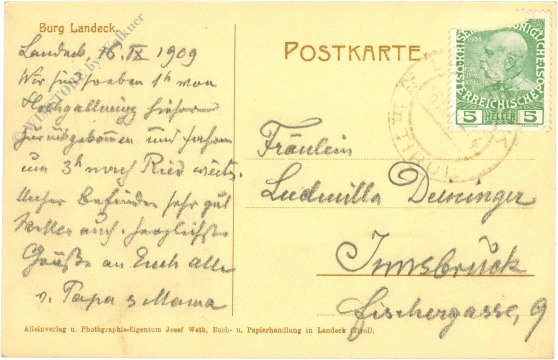 Burg Landeck.
Landeck, 16. IX 1909
Wir sind soeben 1h von
Hochgallmigg hieher
zurückgekommen und fahren
um 3h nach Ried weiter.
Unser Befinden sehr gut
Wetter auch. Herzlichste
Grüße an Euch alle
v. Papa & Mama
POSTKARTE
5 HELLER 5
Fräulein
Ludmilla Deininger
Innsbrück
Fischergasse, 9
Alleinverlag u. Photographie-Eigentum Josef Wath, Buch- u. Papierhandlung in Landeck (Tirol).